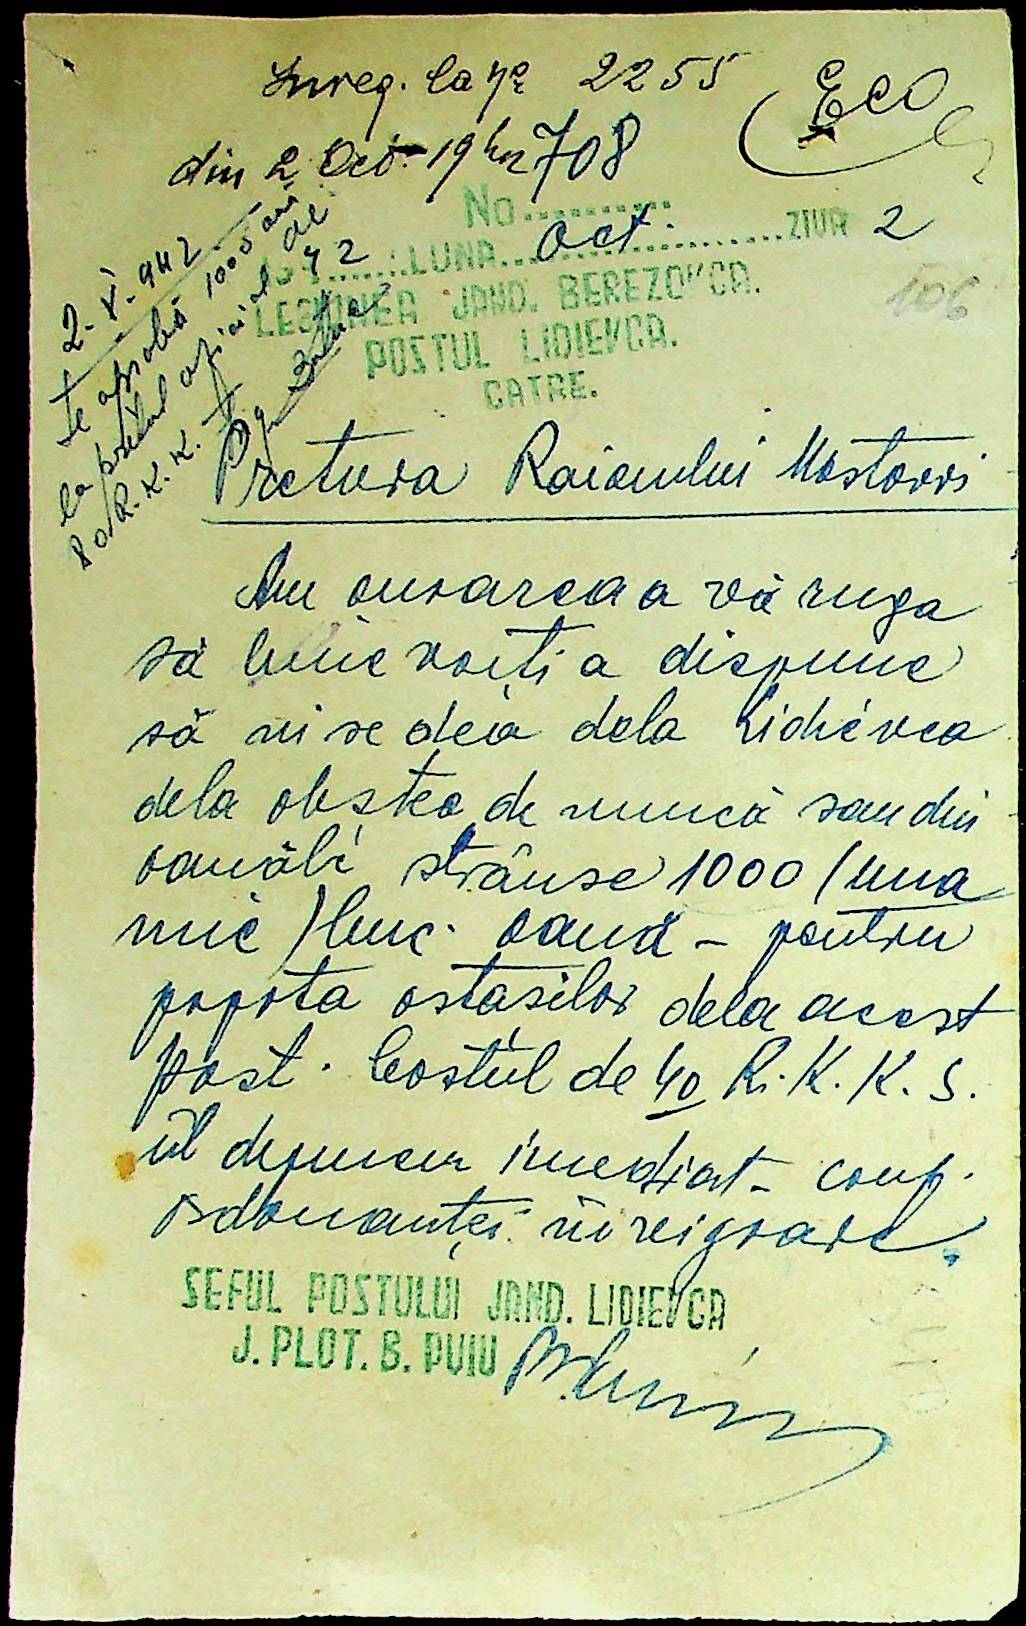 Inreg. la No 2255
Eco
din 2 Oct. 1942
No 708
194 2 LUNA Oct. ZIUA 2
LEGIUNEA JAND. BEREZOVCA.
POSTUL LIDIEVCA.
CATRE.
106
2. X. 942
Se aprobă 1000 ouă
la prețul oficial de
80 R.K.K.S.
Pretura Raionului Mostovoi
Am onoarea a vă ruga
să bine voiți a dispune
să ni se deia dela Lidievca
dela obștea de muncă sau din
ouăle strânse 1000 (una
mie) buc. ouă – pentru
popota ostasilor dela acest
post. Costul de 40 R.K.K.S.
îl depunem imediat conf.
ordonanței în vigoare.
SEFUL POSTULUI JAND. LIDIEVCA
J. PLOT. B. PUIU